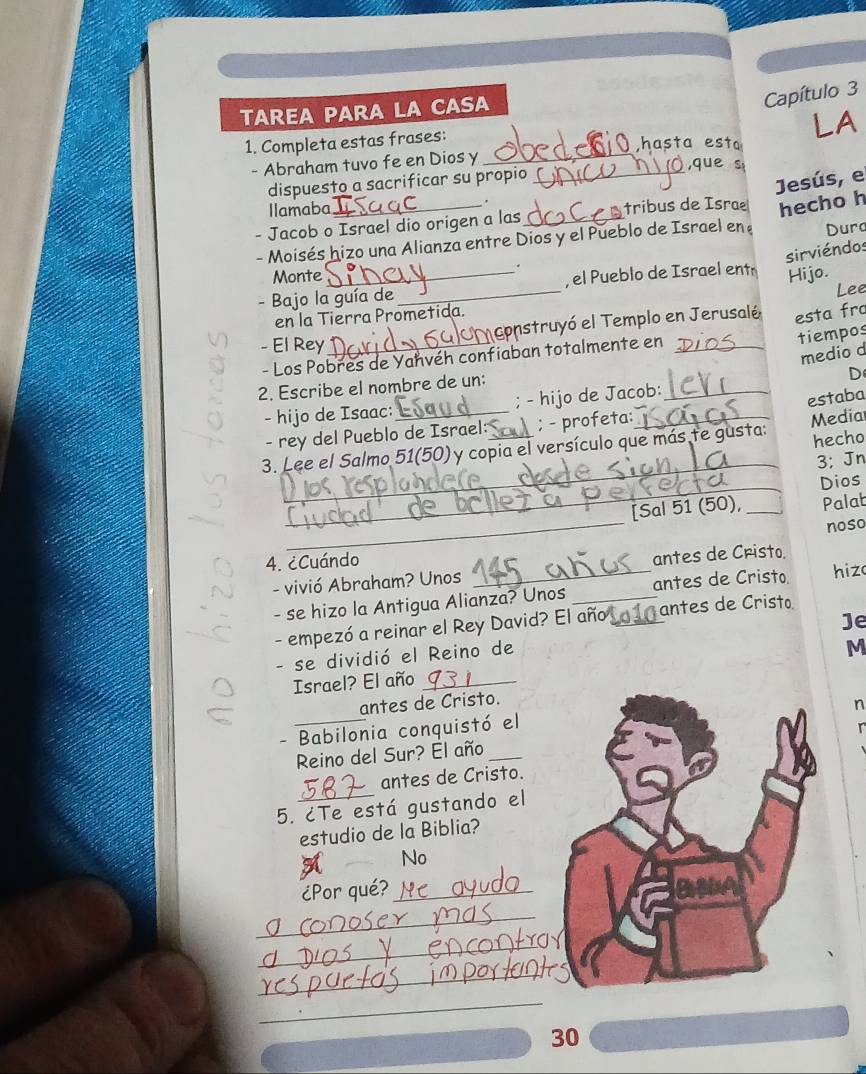 TAREA PARA LA CASA
1. Completa estas frases:
- Abraham tuvo fe en Dios y obedecio, hasta esta
dispuesto a sacrificar su propio Unico hijo, que s
llamaba Isaac.
- Jacob o Israel dio origen a las doce tribus de Israe
- Moisés hizo una Alianza entre Dios y el Pueblo de Israel en e
Monte Sinay.
- Bajo la guía de ____, el Pueblo de Israel entr
en la Tierra Prometida.
- El Rey David y Salomon construyó el Templo en Jerusalé
- Los Pobres de Yahvéh confiaban totalmente en Dios
2. Escribe el nombre de un:
- hijo de Isaac: Esaud; - hijo de Jacob: levi
- rey del Pueblo de Israel: Saul; - profeta: isaias
3. Lee el Salmo 51(50) y copia el versículo que más te gusta:
Dios resplandece desde sion, la
Ciudad de belleza perfecta
[Sal 51 (50), ___
4. ¿Cuándo
- vivió Abraham? Unos 145 años antes de Cristo.
- se hizo la Antigua Alianza? Unos ____ antes de Cristo.
- empezó a reinar el Rey David? El año 1010 antes de Cristo.
- se dividió el Reino de
Israel? El año 931
antes de Cristo.
- Babilonia conquistó el
Reino del Sur? El año
587 antes de Cristo.
5. ¿Te está gustando el
estudio de la Biblia?
No
¿Por qué? Me ayuda
a conoser mas
a Dios y encontrar
respuetas importantes
30
no hizo las tareas
BIBLIA
Capítulo 3
LA
Jesús, e
hecho h
Dura
sirviéndos
Hijo.
Lee
esta fra
tiempos
medio d
De
estaba
Median
hecho
3; Jn
Dios
Palab
noso
hizo
Je
M
n